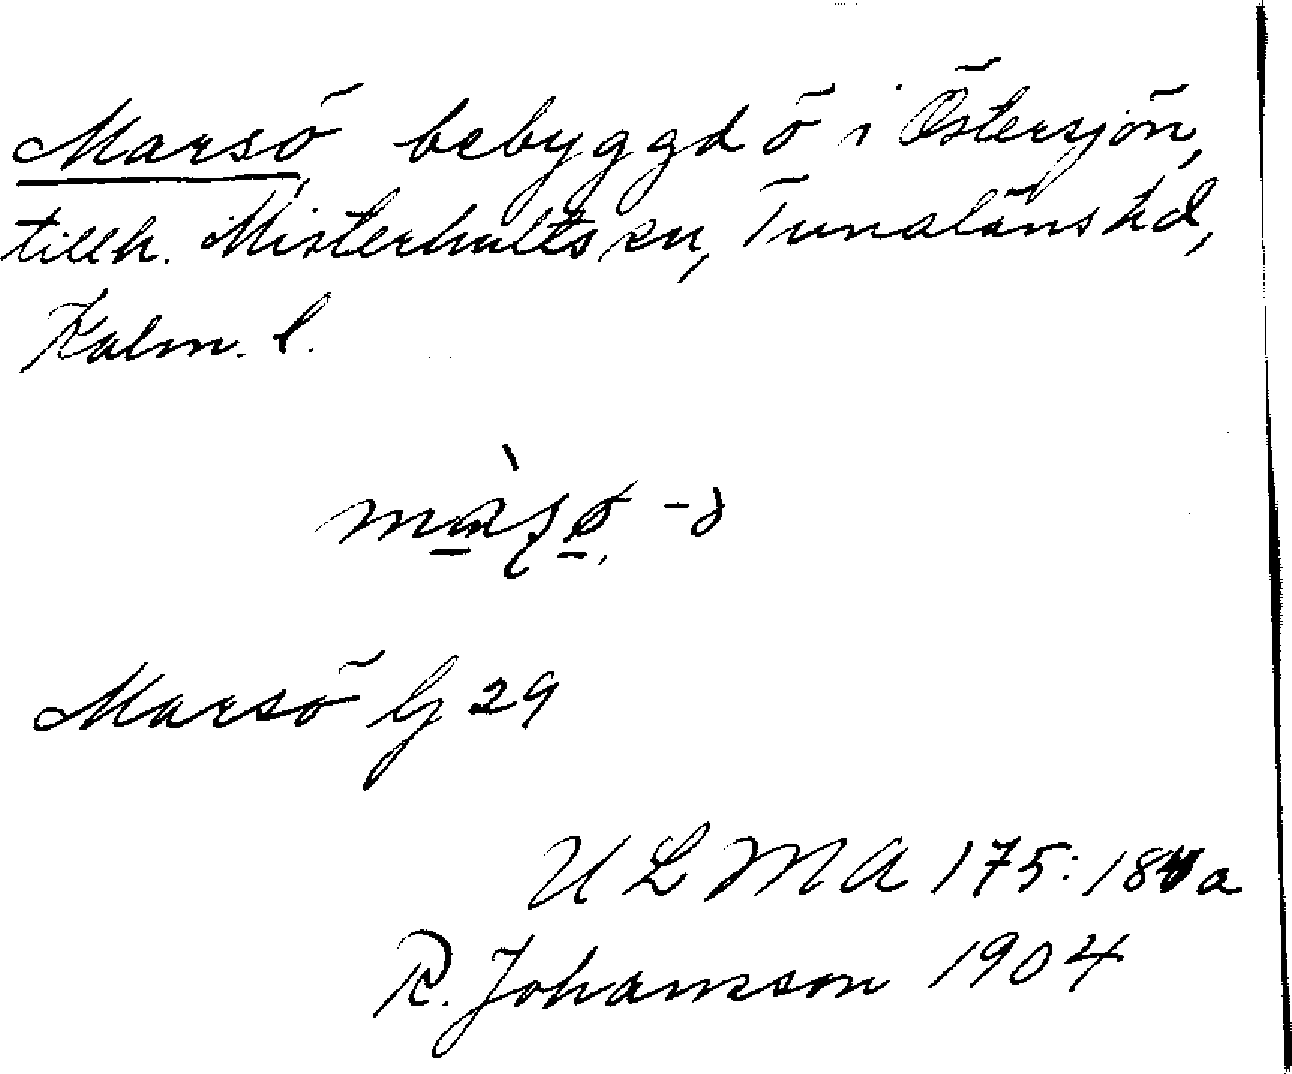 Marsö bebyggd ö i Östersjön,
tillh. Misterhults sn, Tunaläns hd,
Kalm. l.
Marsö G 29
ULMA 175:
R. Johansson 1904